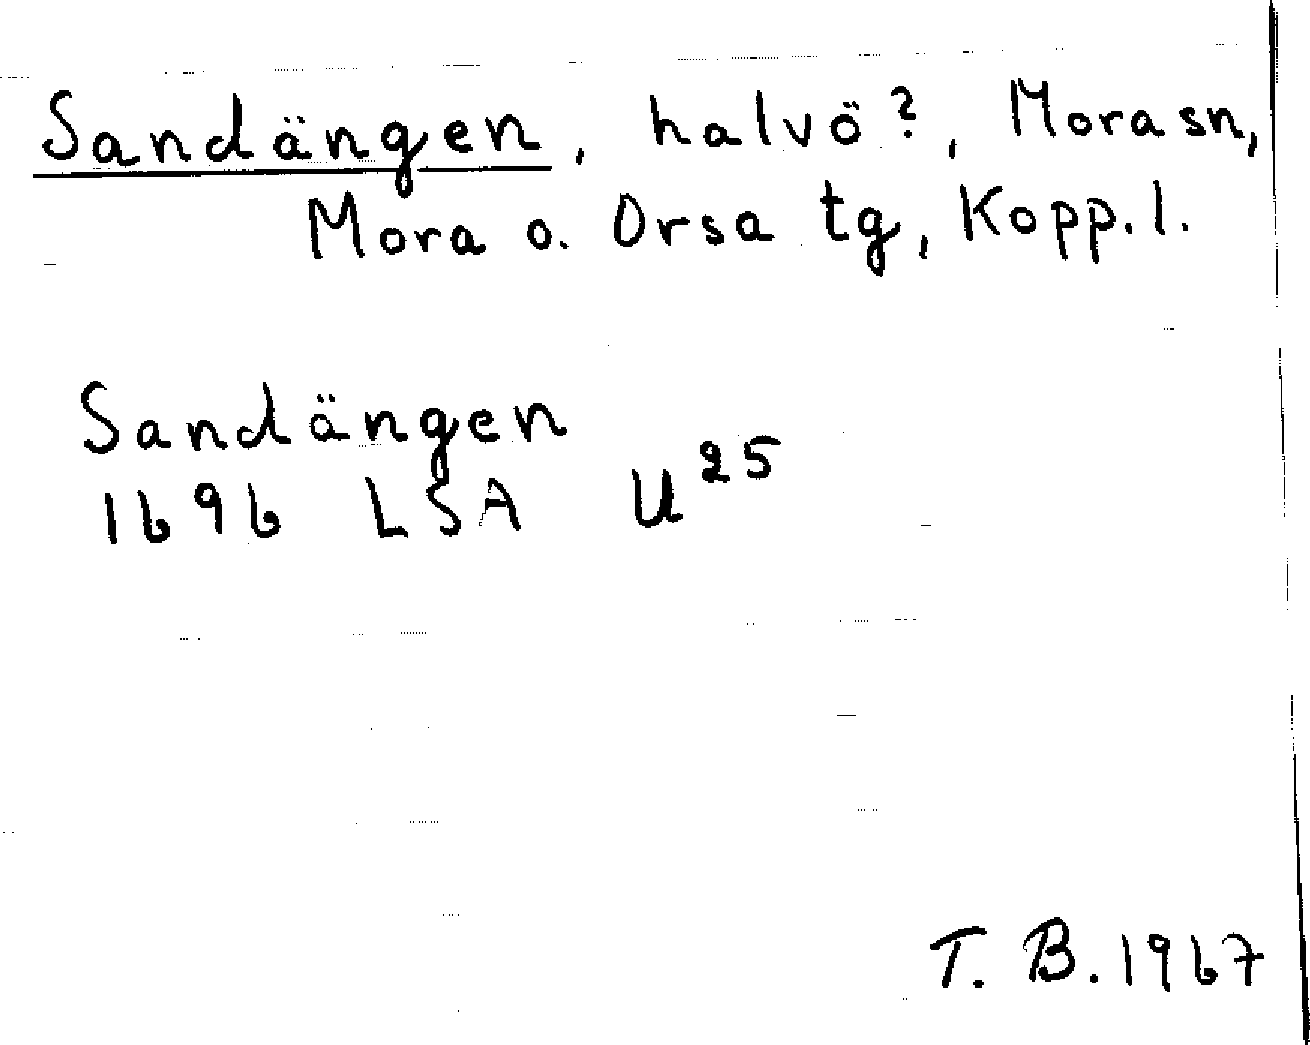 Sandängen, halvö?, Mora sn,
Mora o. Orsa tg, Kopp. l.
Sandängen
1696 LSA U²⁵
T. B. 1967